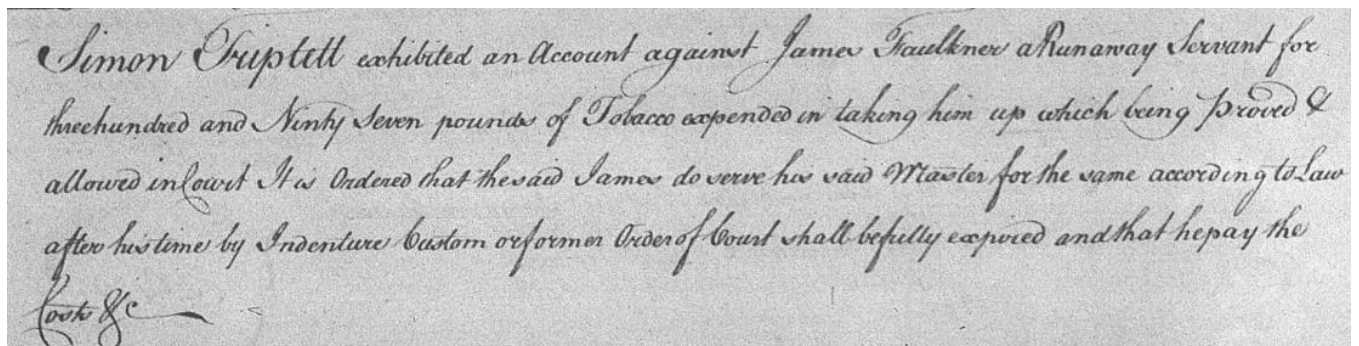 Simon Triplett exhibited an Account against James Faulkner a Runaway Servant for
three hundred and Ninty Seven pounds of Tobacco expended in taking him up which being proved &
allowed in Court It is Ordered that the said James do serve his said Master for the same according to Law
after his time by Indenture Custom or former Order of Court shall be fully expired and that he pay the
Costs &c